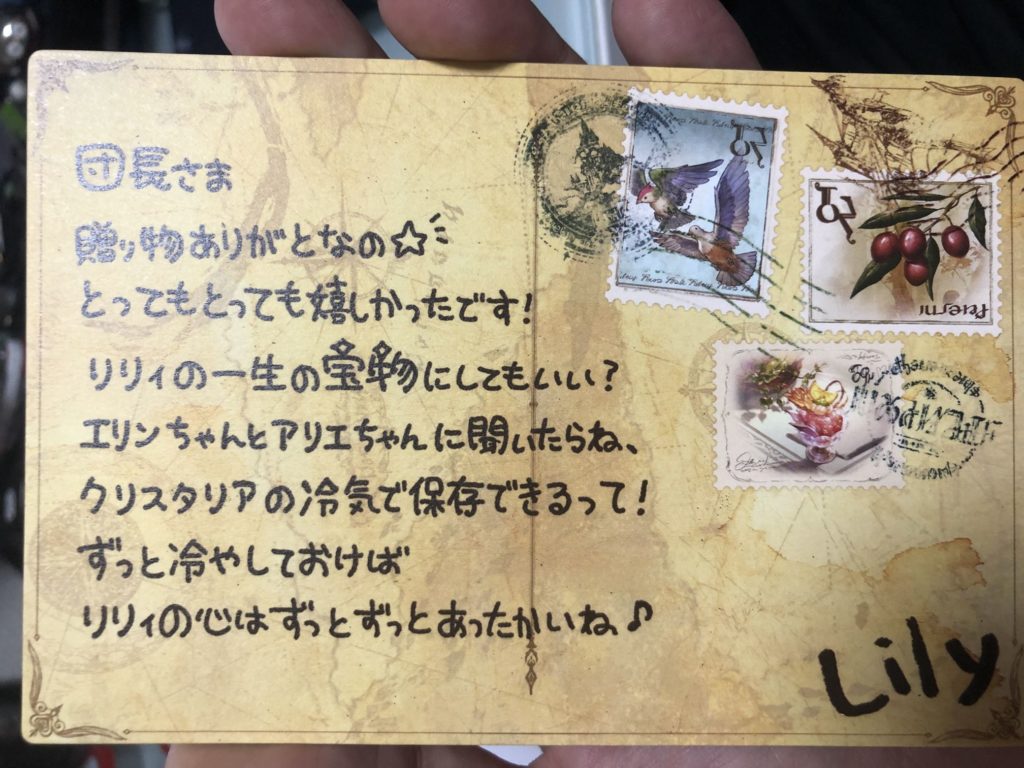 団長さま
贈り物ありがとなの☆
とってもとっても嬉しかったです!
リリィの一生の宝物にしてもいい?
エリンちゃんとアリエちゃんに聞いたらね、
クリスタリアの冷気で保存できるって!
ずっと冷やしておけば
リリィの心はずっとずっとあったかいね♪
Lily